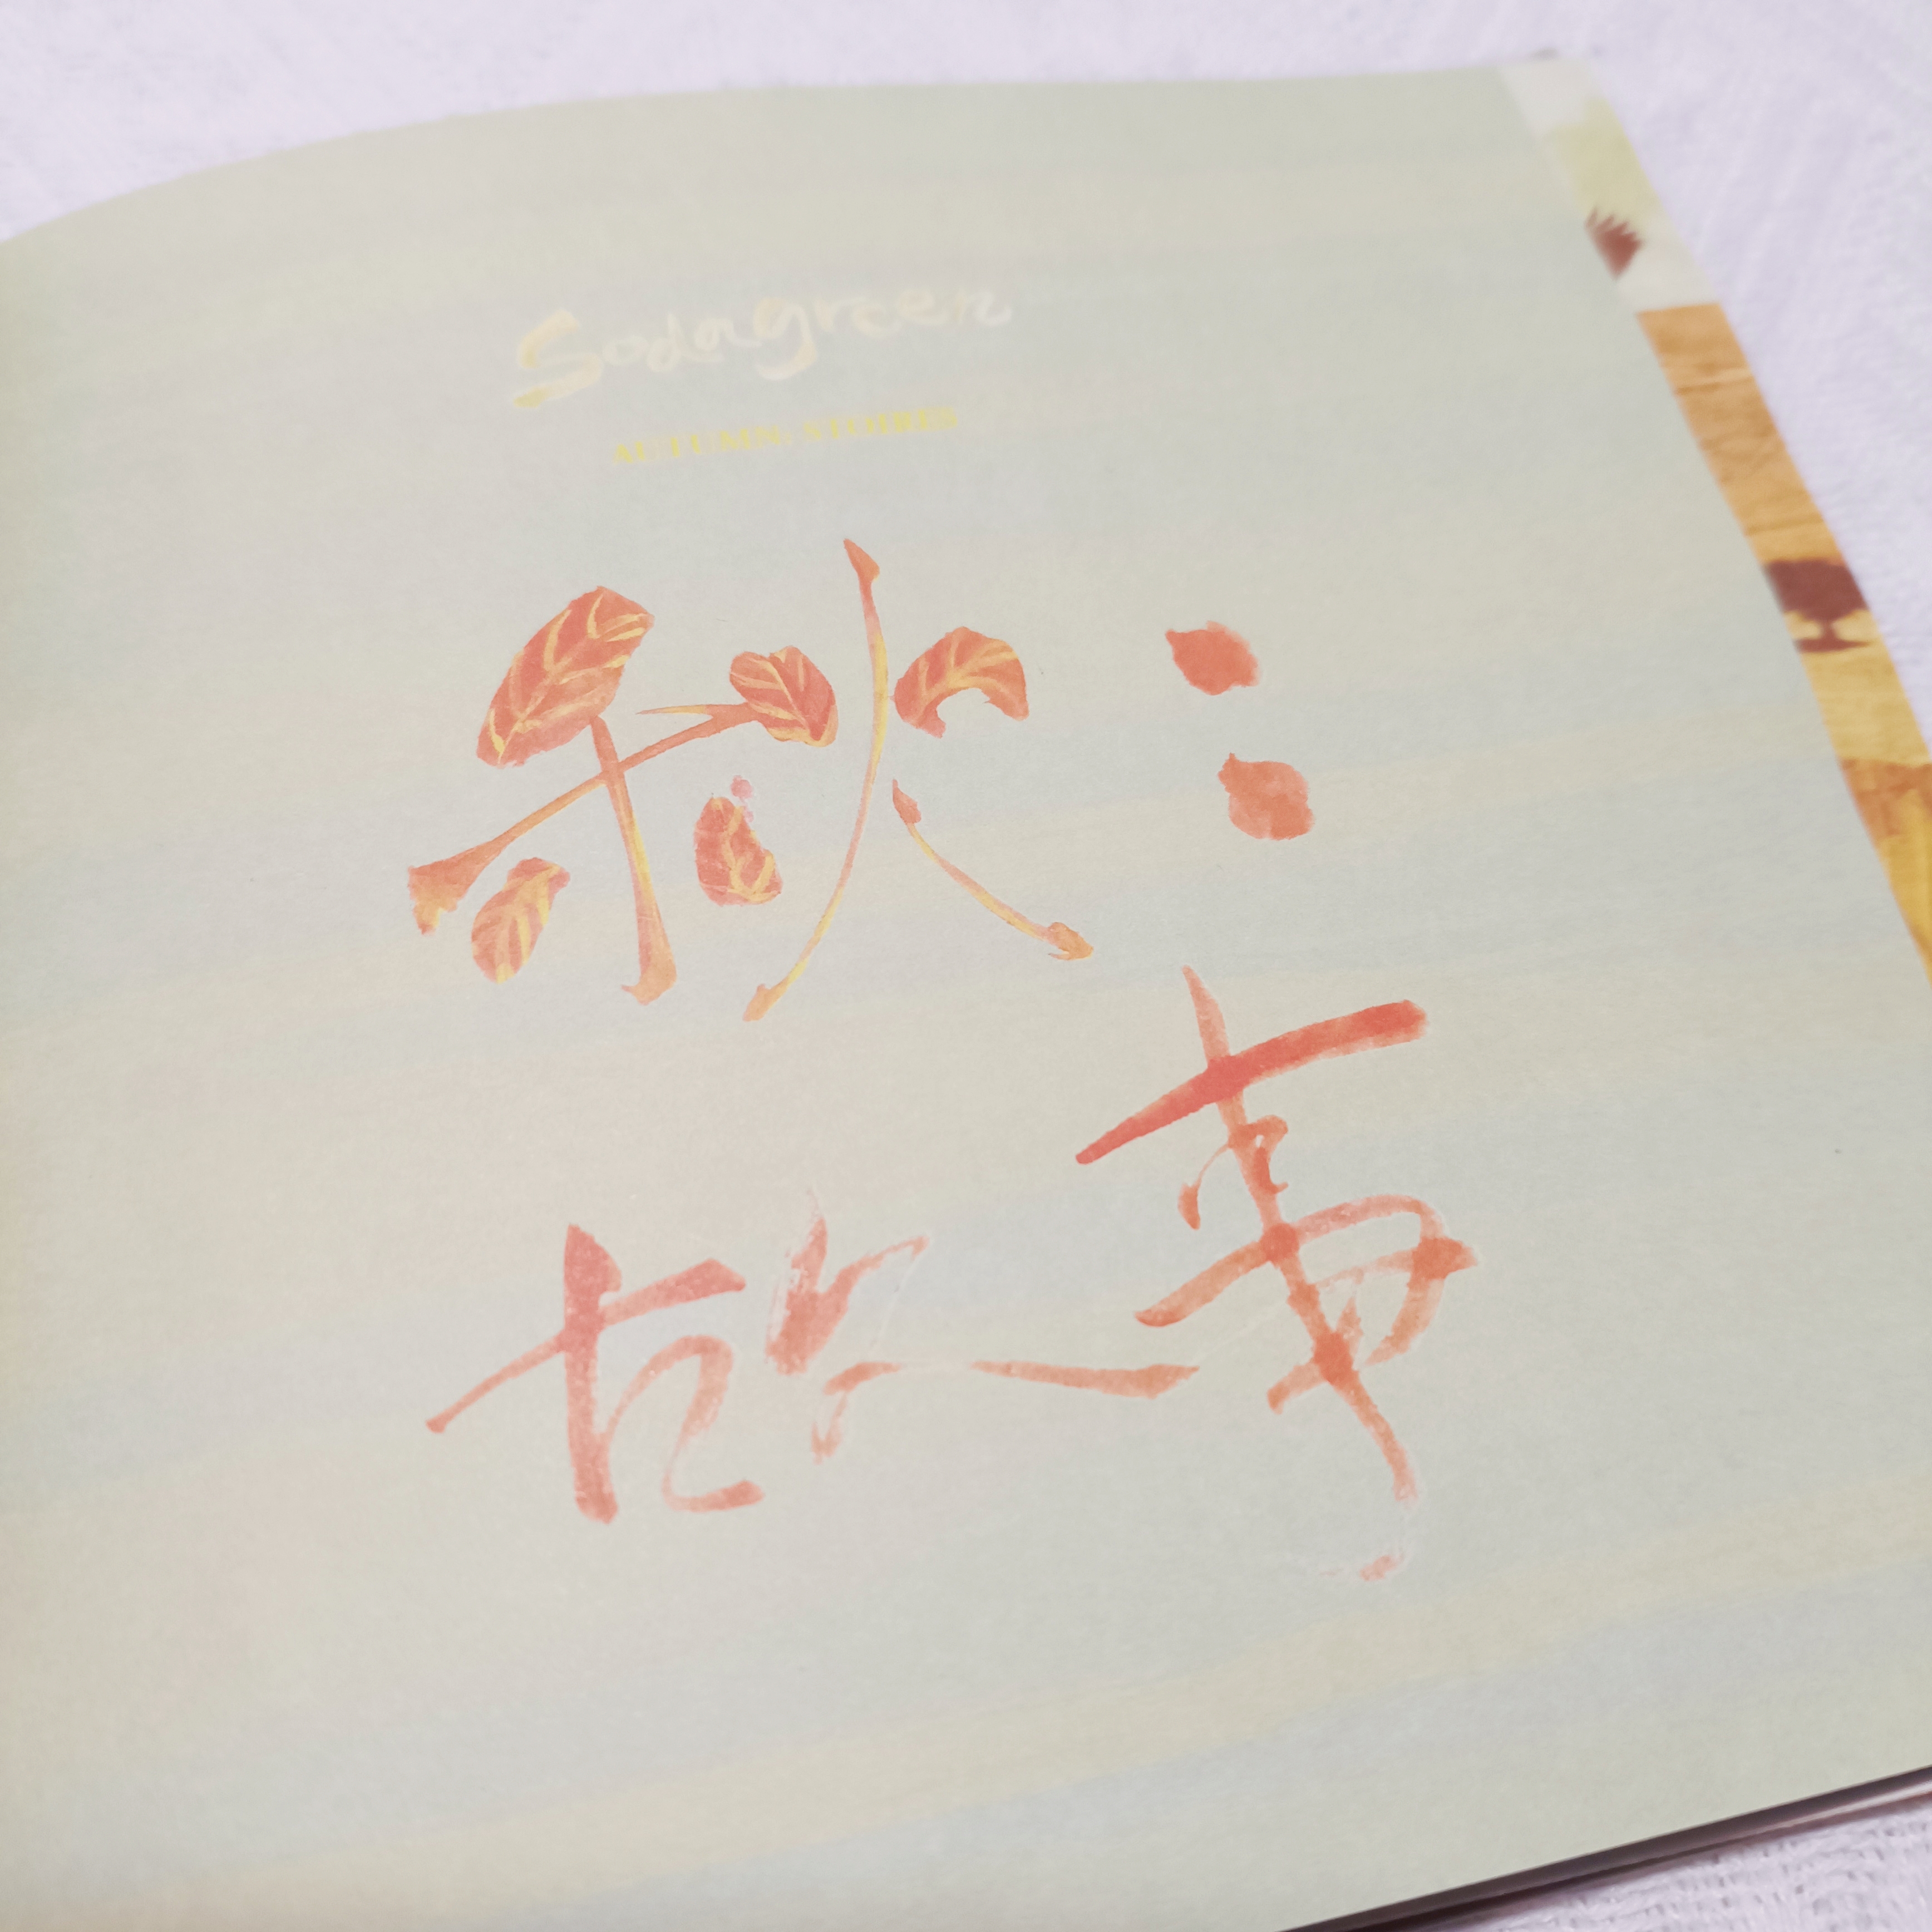 Sodagreen
AUTUMN: STORIES
秋：
故事